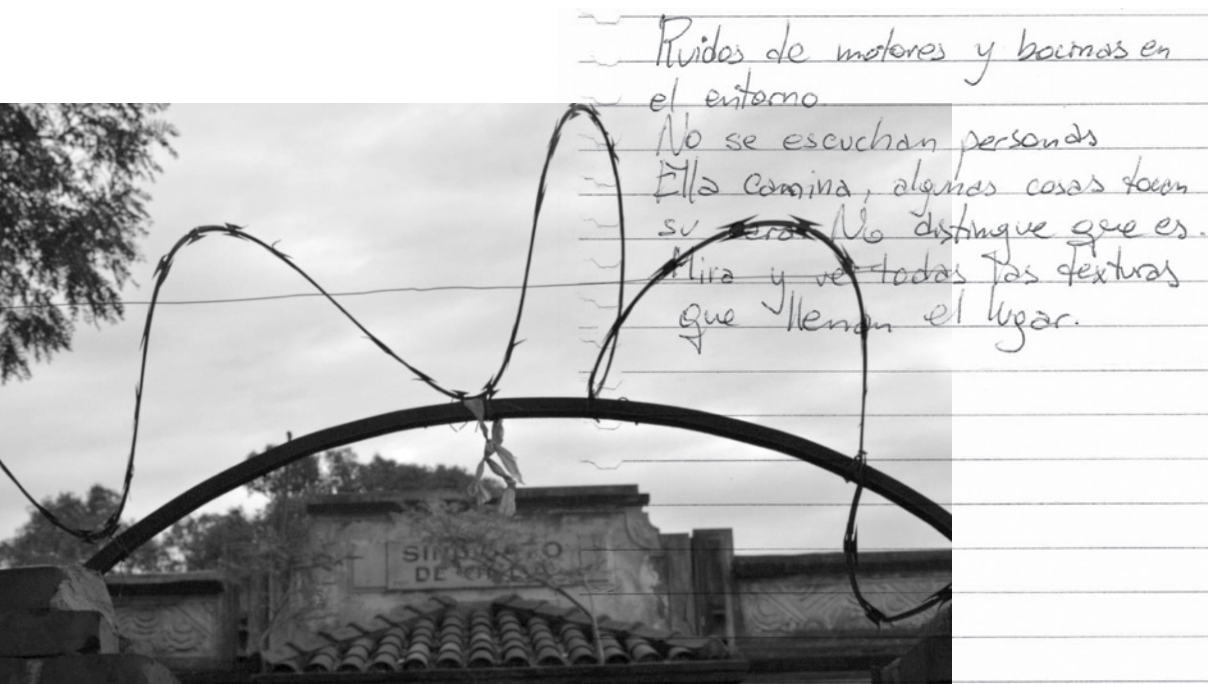 Ruidos de motores y bocinas en
el entorno
No se escuchan personas
Ella camina, algunas cosas tocan
su No distingue que es.
Mira y ve todas las texturas
que llenan el lugar.
SINDICATO
DE